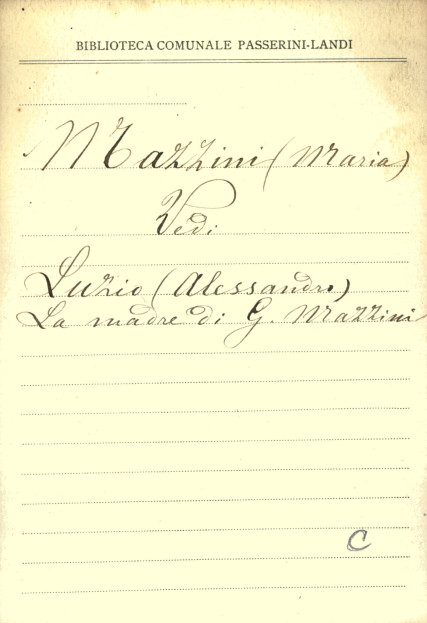 BIBLIOTECA COMUNALE PASSERINI-LANDI
Mazzini (Maria)
Vedi
Luzio (Alessandro)
La madre di G. Mazzini
C